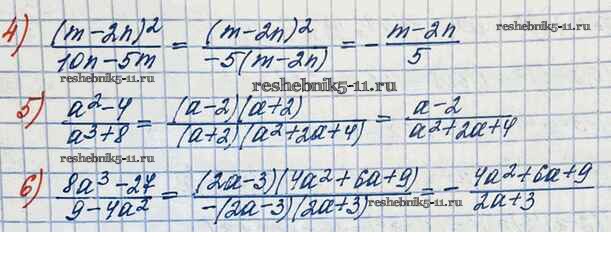 4) (m-2n)²/(10n-5m) = (m-2n)²/(-5(m-2n)) = - (m-2n)/5
reshebnik5-11.ru
reshebnik5-11.ru
5) (a²-4)/(a³+8) = ((a-2)(a+2))/((a+2)(a²+2a+4)) = (a-2)/(a²+2a+4)
reshebnik5-11.ru
6) (8a³-27)/(9-4a²) = ((2a-3)(4a²+6a+9))/(-(2a-3)(2a+3)) = - (4a²+6a+9)/(2a+3)
reshebnik5-11.ru